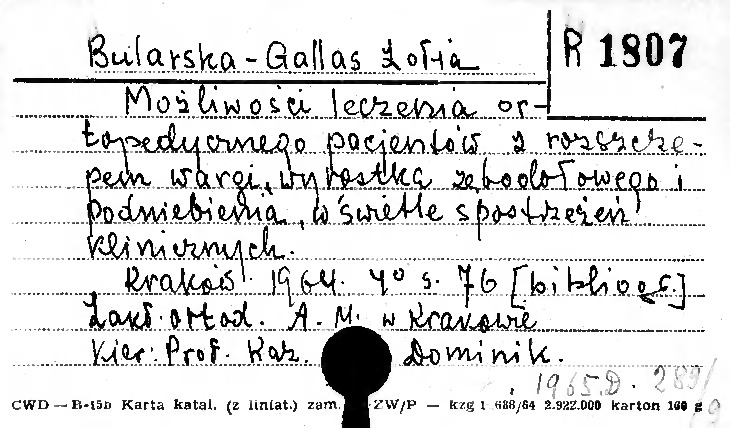 Bularska-Gallas Zofia
R 1807
Możliwości leczenia or-
topedycznego pacjentów z rozszcze-
pem wargi, wyrostka zębodołowego i
podniebienia, w świetle spostrzeżeń
klinicznych.
Kraków 1964. 4° s. 76 [bibliogr.]
Zakł. ortod. A. M. w Krakowie
Kier. Prof. Kaz. Dominik.
1965.D. 289/
CWD — B-15b Karta katal. (z liniat.) zam. ZW/P — kzg 1 688/64 2.922.000 karton 160 g